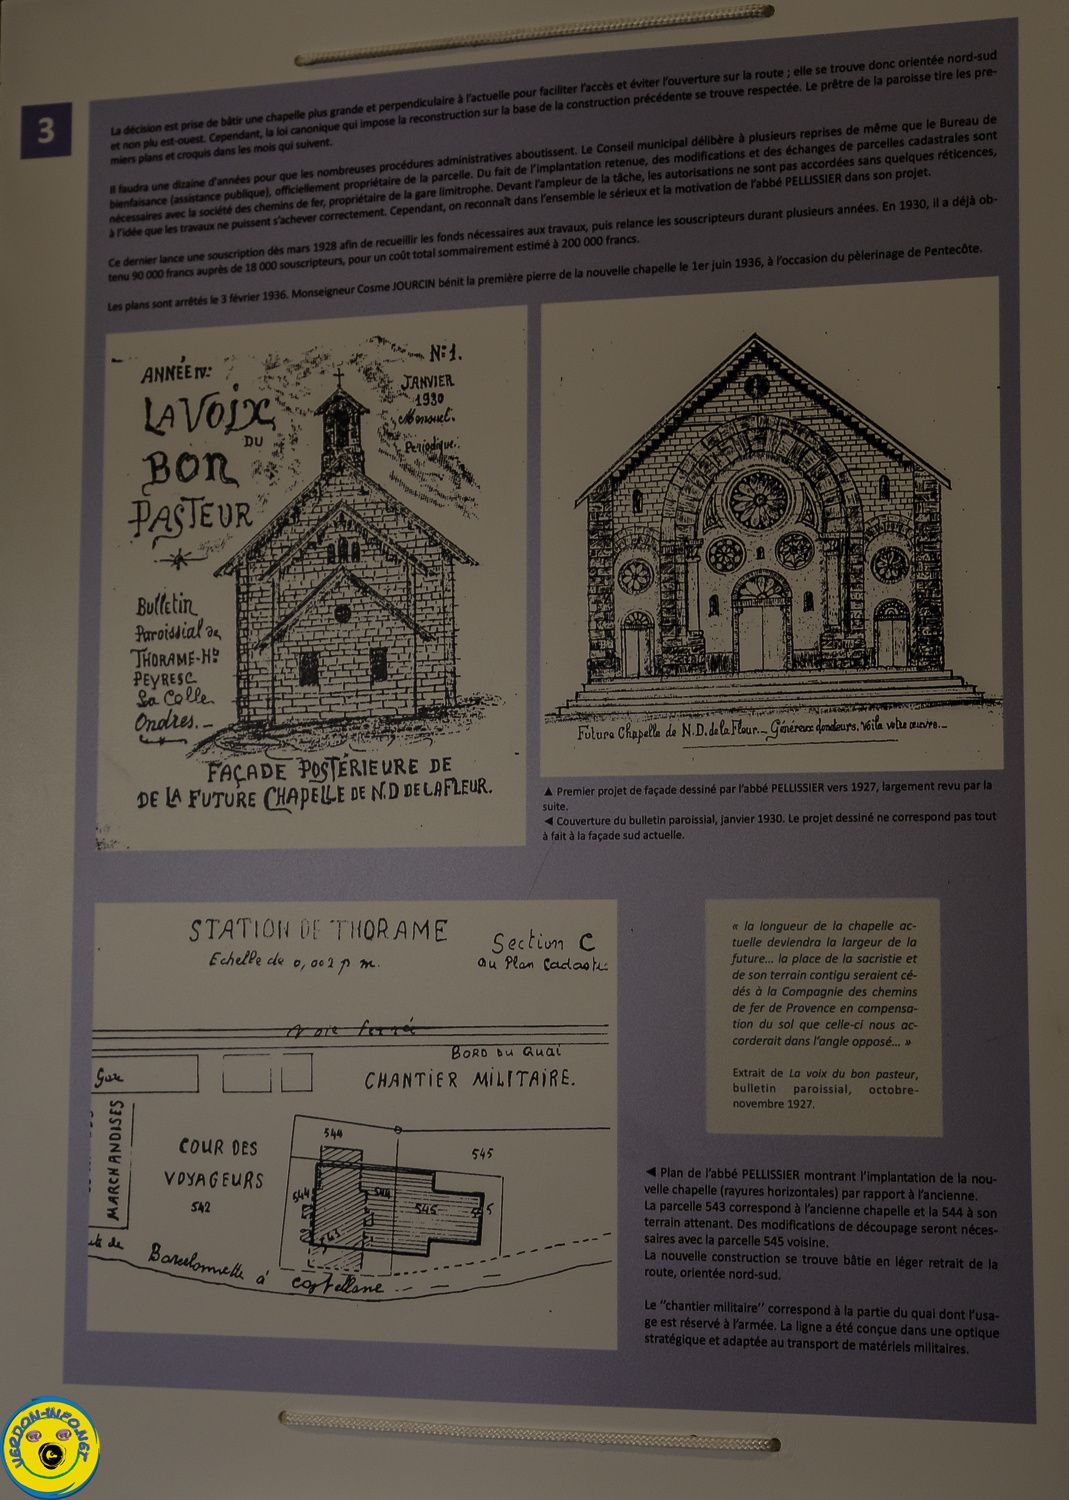 3
La décision est prise de bâtir une chapelle plus grande et perpendiculaire à l'actuelle pour faciliter l'accès et éviter l'ouverture sur la route ; elle se trouve donc orientée nord-sud
et non plu est-ouest. Cependant, la loi canonique qui impose la reconstruction sur la base de la construction précédente se trouve respectée. Le prêtre de la paroisse tire les pre-
miers plans et croquis dans les mois qui suivent.
Il faudra une dizaine d'années pour que les nombreuses procédures administratives aboutissent. Le Conseil municipal délibère à plusieurs reprises de même que le Bureau de
bienfaisance (assistance publique), officiellement propriétaire de la parcelle. Du fait de l'implantation retenue, des modifications et des échanges de parcelles cadastrales sont
nécessaires avec la société des chemins de fer, propriétaire de la gare limitrophe. Devant l'ampleur de la tâche, les autorisations ne sont pas accordées sans quelques réticences,
à l'idée que les travaux ne puissent s'achever correctement. Cependant, on reconnaît dans l'ensemble le sérieux et la motivation de l'abbé PELLISSIER dans son projet.
Ce dernier lance une souscription dès mars 1928 afin de recueillir les fonds nécessaires aux travaux, puis relance les souscripteurs durant plusieurs années. En 1930, il a déjà ob-
tenu 90 000 francs auprès de 18 000 souscripteurs, pour un coût total sommairement estimé à 200 000 francs.
Les plans sont arrêtés le 3 février 1936. Monseigneur Cosme JOURCIN bénit la première pierre de la nouvelle chapelle le 1er juin 1936, à l'occasion du pèlerinage de Pentecôte.
ANNÉE IV.
N° 1.
JANVIER
1930
Mensuel.
Periodique.
LA VOIX
DU
BON
PASTEUR
Bulletin
Paroissial de
THORAME-Hte
PEYRESC
La Colle
Ondres.
FAÇADE POSTÉRIEURE DE
DE LA FUTURE CHAPELLE DE N.D DE LA FLEUR.
Future Chapelle de N.D. de la Fleur. _ Généreux donateurs, voilà votre œuvre. _
▲ Premier projet de façade dessiné par l'abbé PELLISSIER vers 1927, largement revu par la
suite.
◄ Couverture du bulletin paroissial, janvier 1930. Le projet dessiné ne correspond pas tout
à fait à la façade sud actuelle.
STATION DE THORAME
Echelle de 0,002 p m.
Section C
au Plan Cadastr
Voie ferrée
BORD DU QUAI
Gare
CHANTIER MILITAIRE.
MARCHANDISES
COUR DES
VOYAGEURS
542
544
545
544
544
545
543
Barcelonnette à Castellane
« la longueur de la chapelle ac-
tuelle deviendra la largeur de la
future... la place de la sacristie et
de son terrain contigu seraient cé-
dés à la Compagnie des chemins
de fer de Provence en compensa-
tion du sol que celle-ci nous ac-
corderait dans l'angle opposé... »
Extrait de La voix du bon pasteur,
bulletin paroissial, octobre-
novembre 1927.
◄ Plan de l'abbé PELLISSIER montrant l'implantation de la nou-
velle chapelle (rayures horizontales) par rapport à l'ancienne.
La parcelle 543 correspond à l'ancienne chapelle et la 544 à son
terrain attenant. Des modifications de découpage seront néces-
saires avec la parcelle 545 voisine.
La nouvelle construction se trouve bâtie en léger retrait de la
route, orientée nord-sud.
Le "chantier militaire" correspond à la partie du quai dont l'usa-
ge est réservé à l'armée. La ligne a été conçue dans une optique
stratégique et adaptée au transport de matériels militaires.
VERDON-INFO.NET